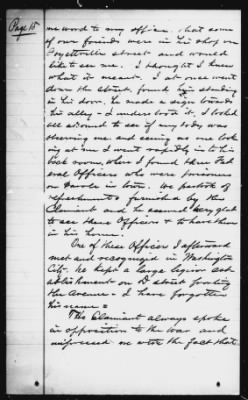 Page 15
me word to my office, that some
of our friends were in his shop on
Fayetteville street and would
like to see me. I thought I knew
what it meant. I at once went
down the street, found him standing
in his door, he made a sign towards
his alley - I understood it. I looked
all around to see if any body was
observing me and seeing no one look
ing at me I went rapidly in to his
back room, where I found three Fed
eral Officers who were prisoners
on Parole in town. We partook of
refreshments furnished by the
Claimant and he seemed very glad
to see these Officers & to have them
in his house.
One of these Officers I afterward
met and recognized in Washington
City. He kept a large liquor est
ablishment on D street fronting
the Avenue - I have forgotten
his name =
This Claimant always spoke
in opposition to the War and
impressed me with the fact that